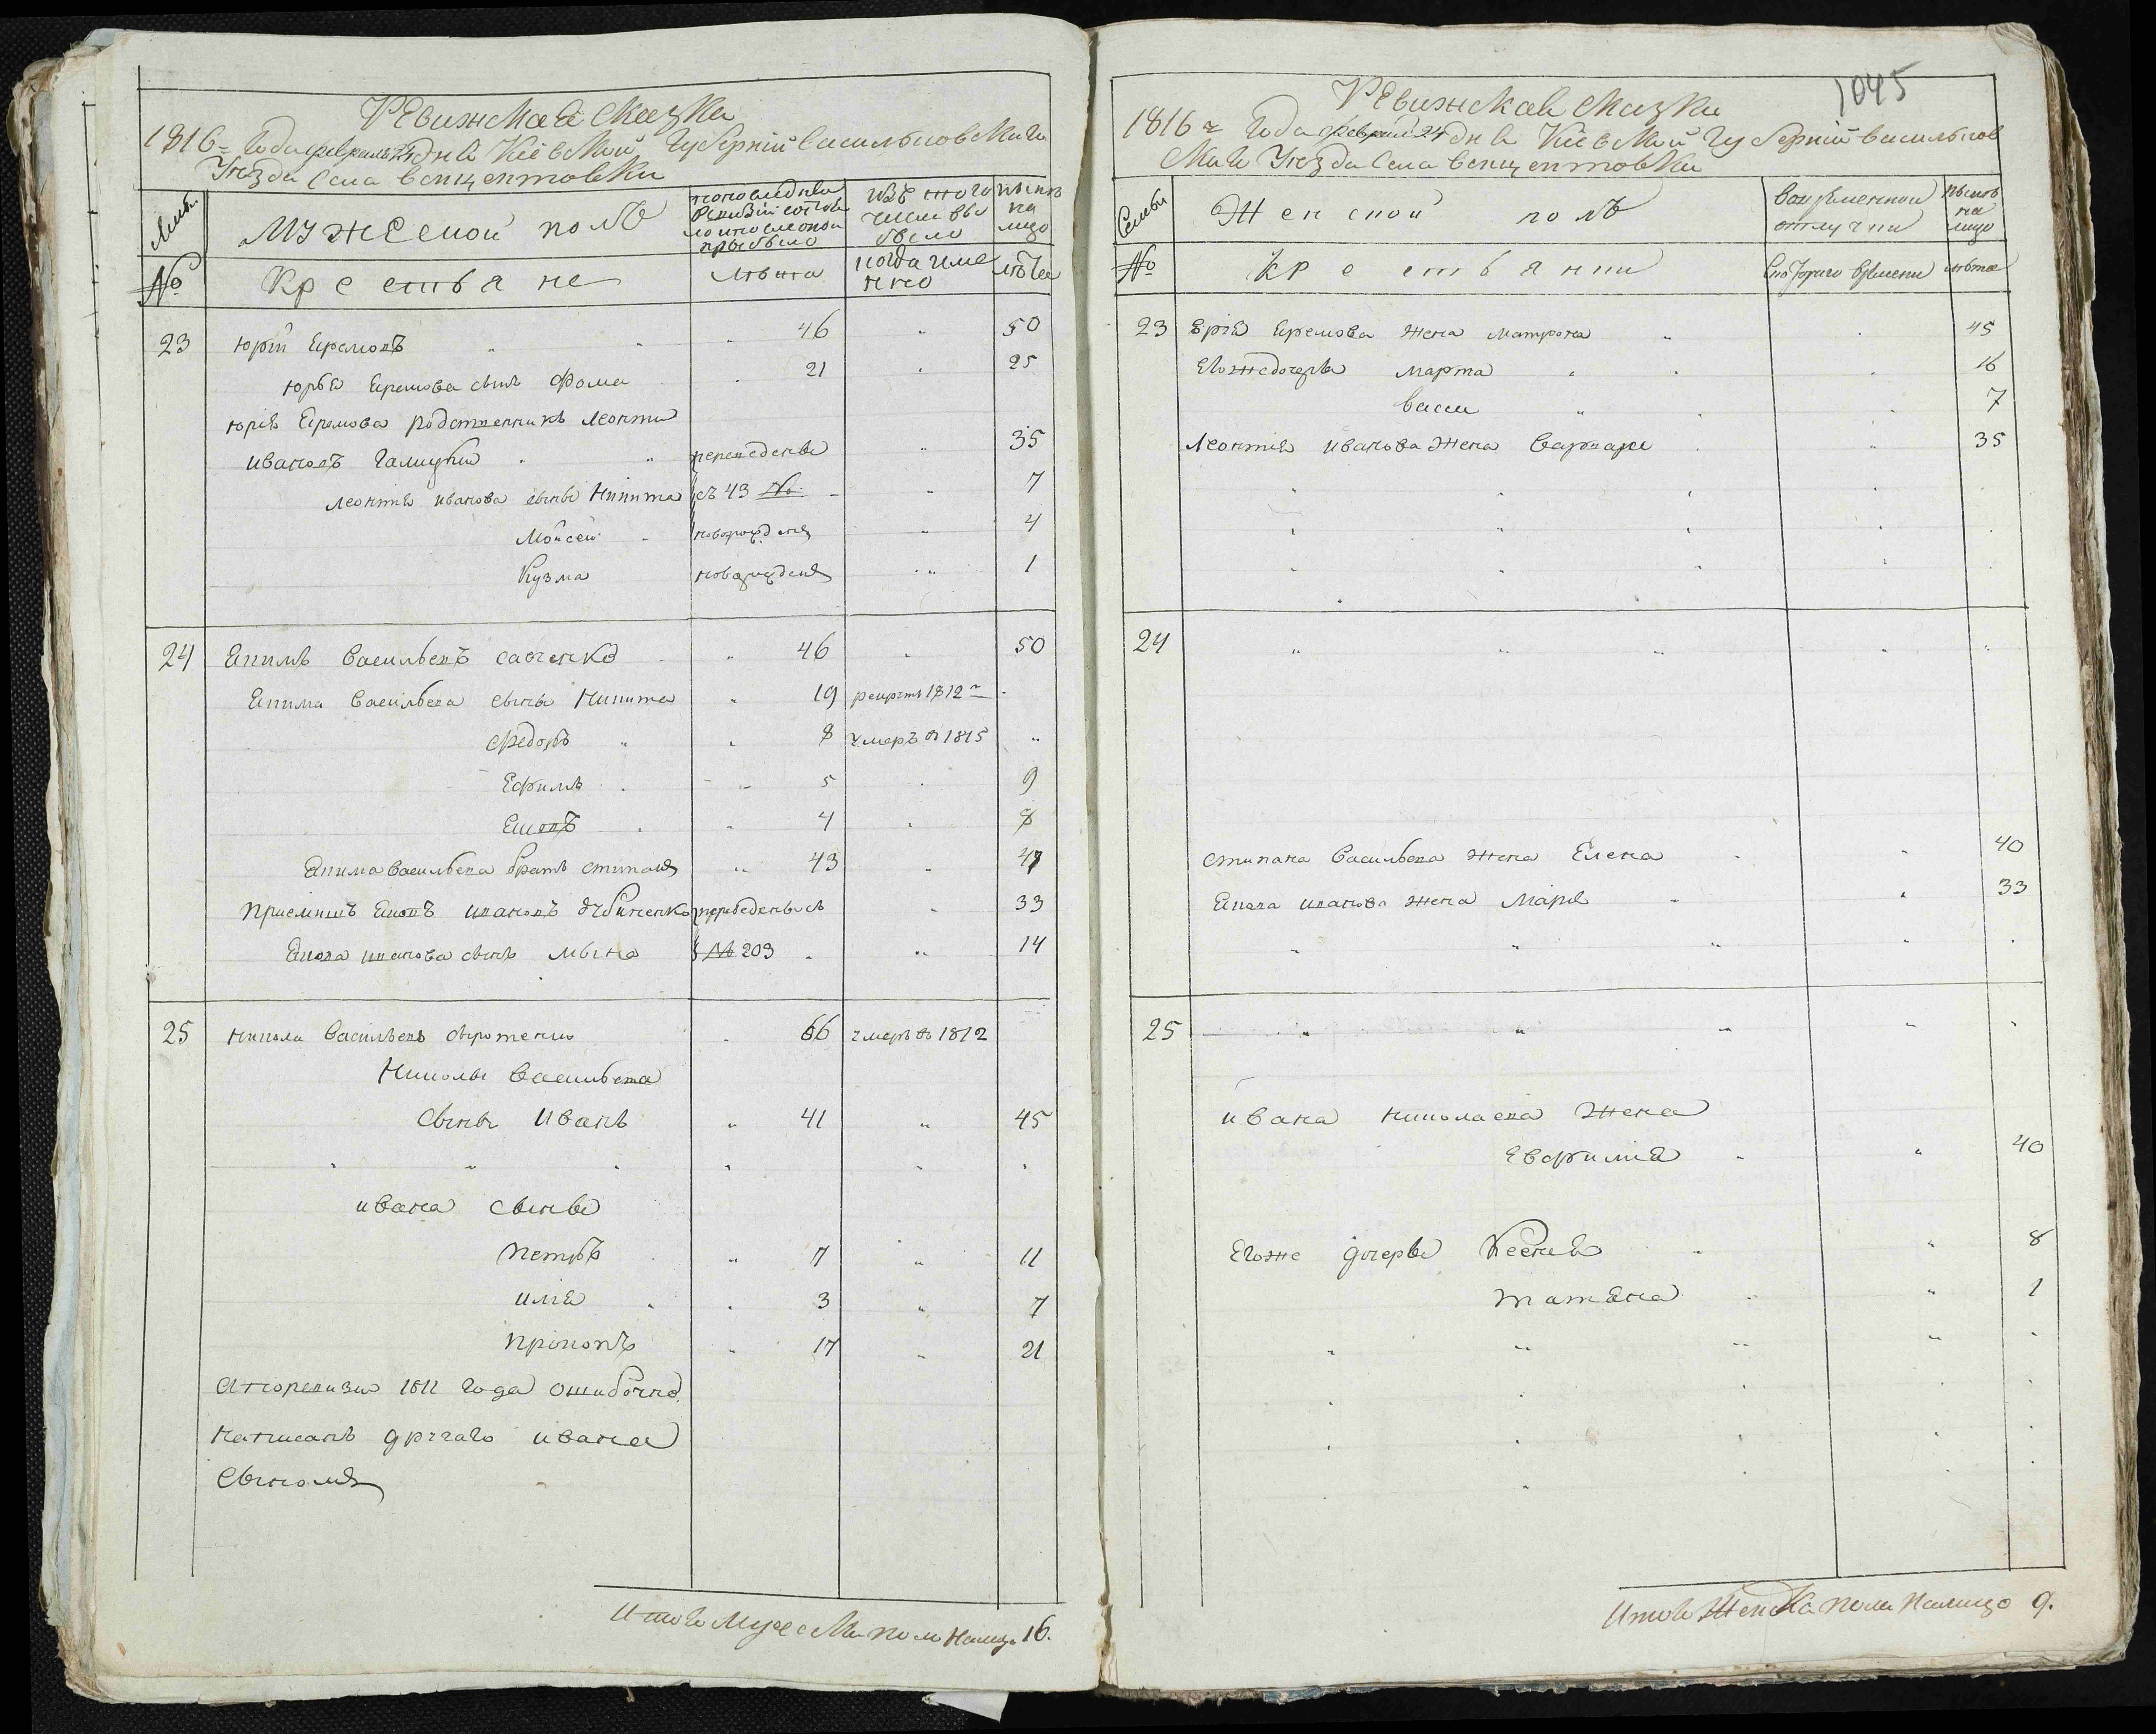 Ревижская сказка
1816 года февраля 24 дня Кіевской Губерніи васильковскаго
Уезда села венцентовки
Семьи
мужеской полъ
по последней ревизіи состояло и после оной прыбыло
изъ того числа выбыло
ныне на лицо
№
Крестьяне
лѣта
когда именно
лѣта
23 Юрій Ефремовъ 46 50
Юрья Ефремова сынъ Фома 21 25
Юрія Ефремова родственникъ Леонтий
Ивановъ Галицкий переведены 35
Леонтія Иванова сыны Никита съ 43 № 7
Мойсей новорожденя 4
Кузма новорожденя 1
24 Екимъ Васильевъ савченко 46 50
Екима Васильева сыны Никита 19 рекрутъ 1812
Федоръ 8 умеръ в 1815
Ефимъ 5 9
Яковъ 4 8
Екима Васильева братъ степанъ 43 47
Приемишъ Яковъ ивановъ дубиненко переведены съ 33
Якова иванова сынъ мына № 203 14
25 Никола Васильевъ сыротенко 66 умеръ въ 1812
Николы Васильева
Сыны Иванъ 41 45
ивана сыны
Петръ 7 11
илія 3 7
Прокопъ 17 21
а по ревизии 1811 года ошибочно
написанъ другаго ивана
Сыномъ
Итого Мужеска пола налицо 16.
1045
Ревижская сказка
1816 г года февраля 24 дня Кіевской Губерніи васильков
скаго Уезда села венцентовки
Семьи
Женской полъ
во временной отлучки
ныне на лицо
№
Крестьянки
Съ которого времени
лѣта
23 Юрія Ефремова жена матрона 45
Егожъ дочеры марта 16
васса 7
Леонтия иванова жена Варвара 35
24
степана Васильева жена Елена 40
Якова иванова жена Марія 33
25
ивана николаева жена
Евфимія 40
Егоже дочеры Ксения 8
татяна 1
Итого Женска пола налицо 9.